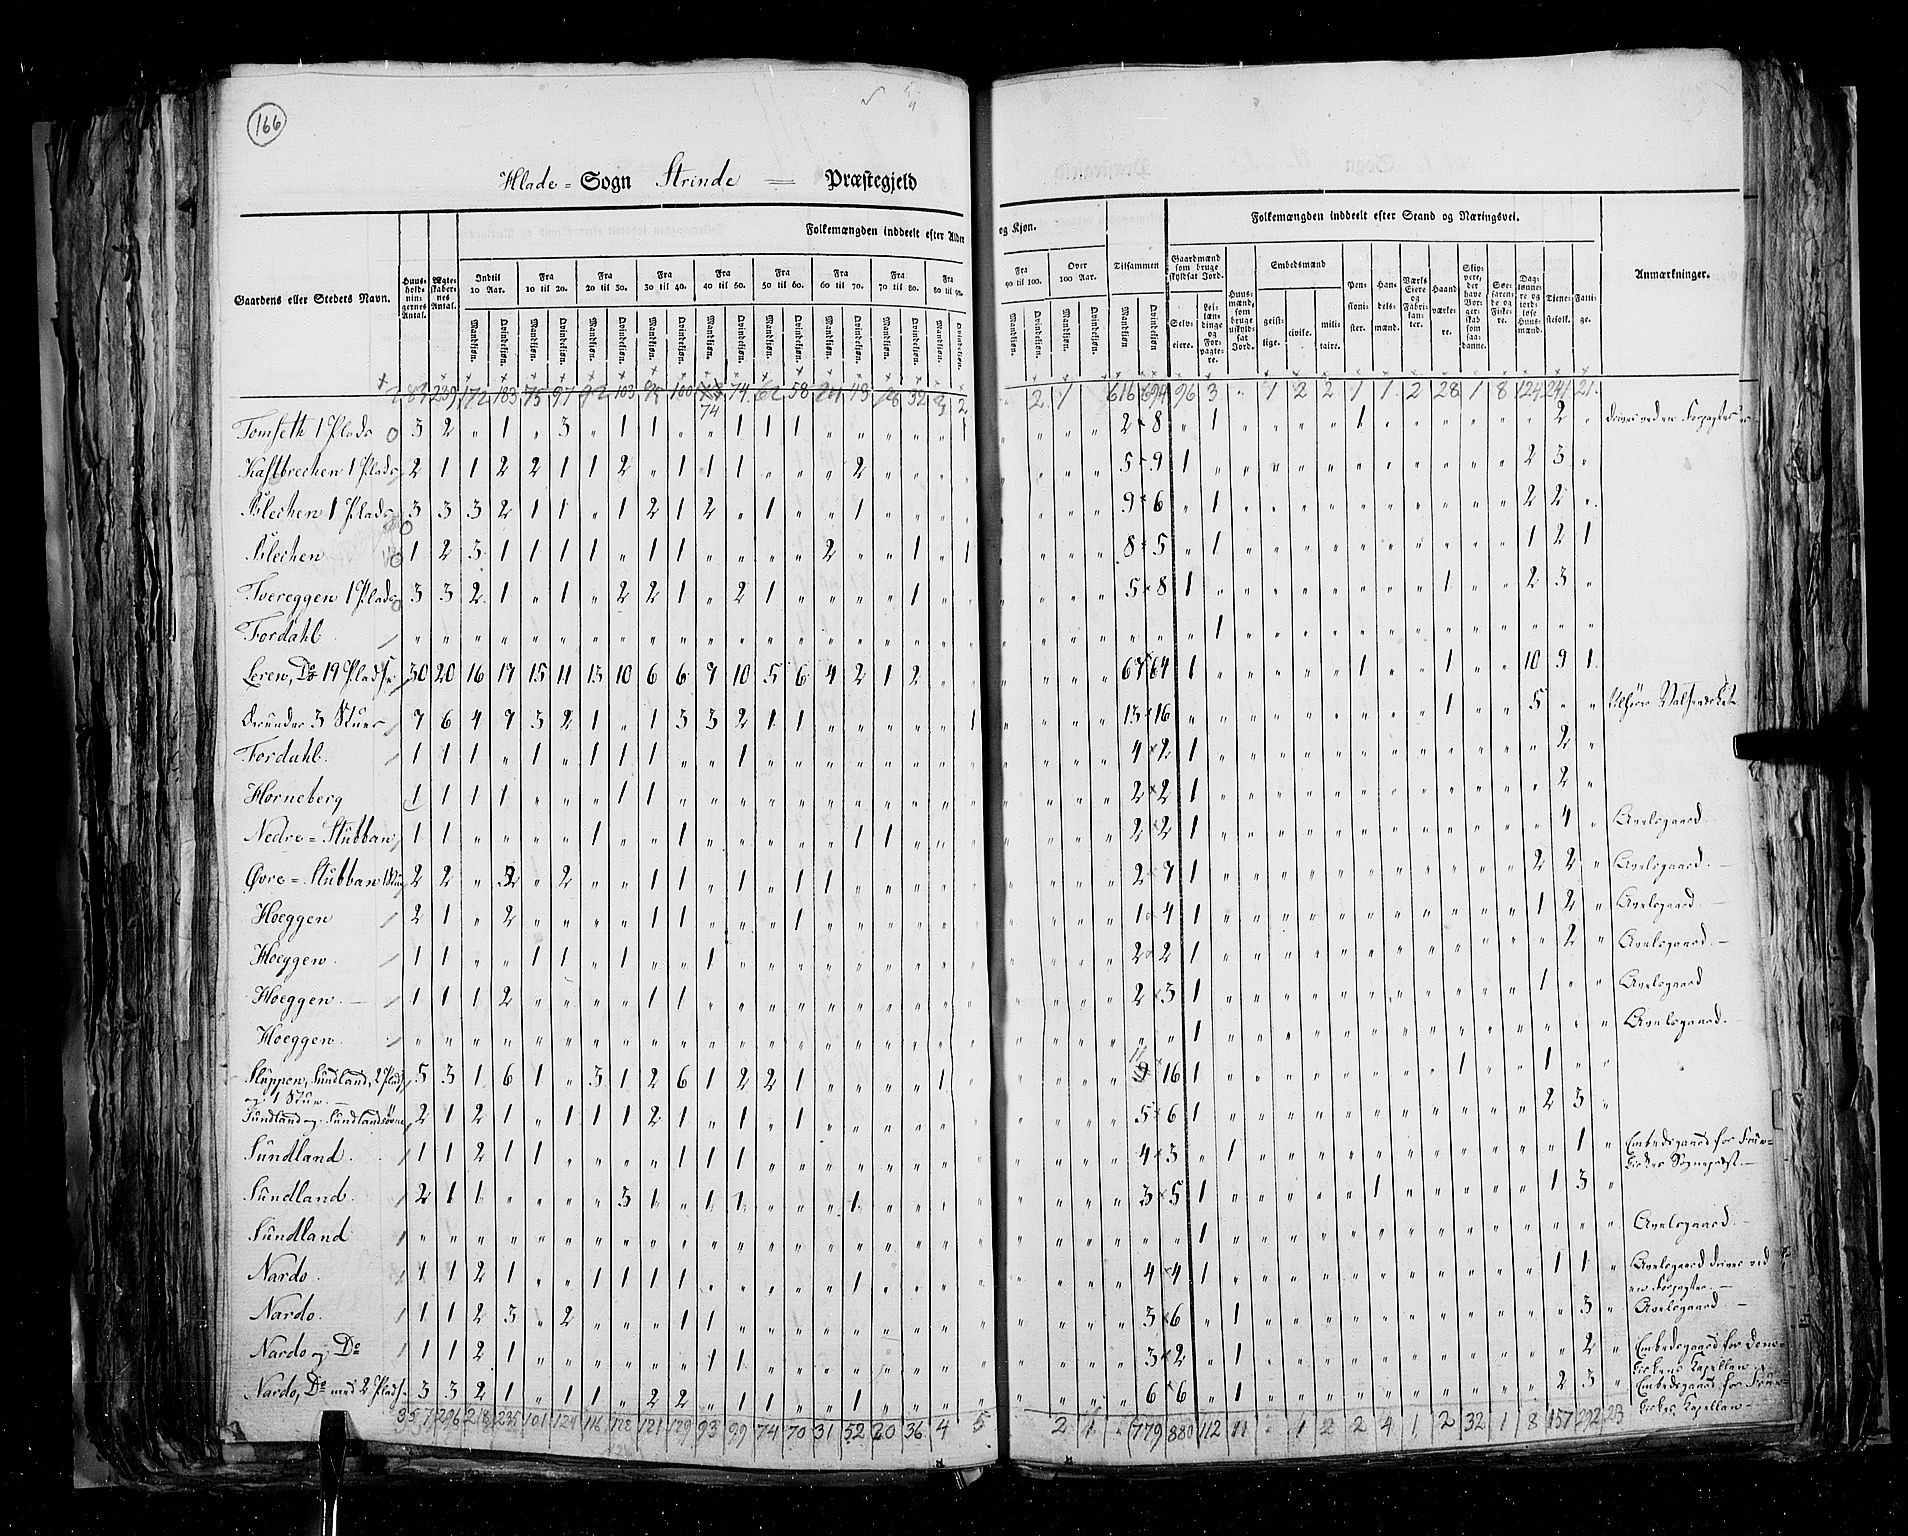 166
Hlade = Sogn Strinde = Præstegjeld
Gaardens eller Stedets Navn.
Huus-holdningernes Antal.
Ægteskabernes Antal.
Folkemængden inddeelt efter Alder og Kjøn.
Indtil 10 Aar.
Fra 10 til 20.
Fra 20 til 30.
Fra 30 til 40.
Fra 40 til 50.
Fra 50 til 60.
Fra 60 til 70.
Fra 70 til 80.
Fra 80 til 90.
Fra 90 til 100.
Over 100 Aar.
Tilsammen
Mandkjøn. Qvindekjøn.
Folkemængden inddeelt efter Stand og Næringsvei.
Gaardmænd som bruge skyldsat Jord.
Selveiere.
Leilændinge og Forpagtere.
Huusmænd, som bruge uskyldsat Jord.
Embedsmænd
geistlige.
civile.
militaire.
Pensionister.
Handelsmænd.
Værks Eiere og Fabrikanter.
Haandværkere.
Skippere, der have Borgerskab som saadanne.
Søefarende og Fiskere.
Dagslønnere og jordløse Huusmænd.
Tjenestefolk.
Fattige.
Anmærkninger.
239 172 183 75 97 92 103 95 100 74 74 62 58 32 2 2 1 616 694 96 3 " 1 2 2 1 1 2 28 1 8 124 241 21
Tomseth 1 Plads 3 2 " 1 " 3 " 1 1 " " 1 1 1 " " " " " 1 2 8 " 1 1 2 "
Kastbrechen 1 Plads 2 1 1 2 2 1 1 2 " 1 1 1 " " " 2 " " " 5 9 1 2 3 "
Blechen 1 Plads 3 3 3 2 1 1 " 1 2 1 2 " 1 " " 1 " " " 9 6 " 1 2 2 "
Blechen 1 2 3 1 1 1 1 " 1 1 " " " " 2 " " 1 " 1 8 5 " 1 1 2 1
Tvereggen 1 Plads 3 3 2 1 " 1 " 2 2 1 " 2 1 " " " " 1 " 5 8 1 1 2 3 "
Fordahl " " " " " " " " " " " " " " " " " " " " " " 1
Leren, Do 19 Pladse 30 20 16 17 15 11 13 10 6 6 7 10 5 6 4 2 1 2 " 67 64 1 1 1 10 9 1
Grunder 3 Stuer 7 6 4 7 3 2 1 " 1 3 3 2 1 1 " " " " " 1 13 16 1 5 " "
Fordahl 1 1 1 " 1 " 1 1 1 " " 1 " " " " " " " 4 2 1 2 "
Horneberg 1 1 1 1 " " " 1 1 " " " " " " " " " " 2 2 1 2 "
Nedre = Stubban 1 1 " " " " 1 " " 1 " " " " " 1 1 " " 2 2 1 4 " Avelsgaard
Øvre = Stubban 2 2 " 2 " 2 " " 1 1 " 1 " 1 1 " " " " 2 7 1 2 2 " Avelsgaard. —
Hoeggen 2 1 " 2 " " " " 1 1 " " " 1 " " " " " 1 4 1 1 2 " Avelsgaard. —
Hoeggen. 1 1 " " 1 1 " 1 " " 1 " " " " " " " " 2 2 1 2 " Avelsgaard. —
Hoeggen. — 1 1 1 2 " " " " 1 1 " " " " " " " " " 2 3 1 1 " " Avelsgaard
Hoeggen. " " " " " " " " " " " " " " " " " " " " " 1 " " Avelsgaard. —
Sluppen, Sundland, 2 Pladse og 1 Stue. — 5 3 1 6 1 " 3 1 2 6 1 2 2 1 " " " " 1 11 16 1 1 1 "
Sundland og Sundlandsøvre 2 1 2 1 " 1 1 1 2 1 " 1 " 1 " " " " " 5 6 1 2 3 "
Sundland. 1 1 2 1 1 " " " " 1 1 1 " " " " " " " 4 3 " 1 1 " Embedsgaard for Frue-Kirkes Sognepræst. —
Sundland. 2 1 1 " " " " 3 1 " 1 1 " " " 1 " " " 3 5 1 1 1 3 "
Sundland " " " " " " " " " " " " " " " " " " " " " 1 " " Avelsgaard. —
Nardo. 1 1 2 1 " " 1 1 1 1 " " " " " 1 " " " 4 4 1 1 1 " Avelsgaard drives ved en Forpagter. —
Nardo. 1 1 2 3 " 2 " " " 1 1 " " " " " " " " 3 6 " 1 3 " Avelsgaard. —
Nardo og Do 1 1 2 1 " " " " " " 1 1 " " " " " " " 3 2 " 1 2 " Embedsgaard for Dom-Kirkens Kapellan. —
Nardo, Do med 2 Pladse. 3 3 2 1 " 1 1 " 2 2 " " 1 " " 1 " " " 6 6 " 1 2 3 " Embedsgaard for Frue-Kirkes Kapellan —
357 296 218 235 101 124 116 128 121 129 93 99 74 70 31 52 20 36 4 5 2 1 " 779 880 112 11 " 1 2 2 4 1 2 32 1 8 157 292 23